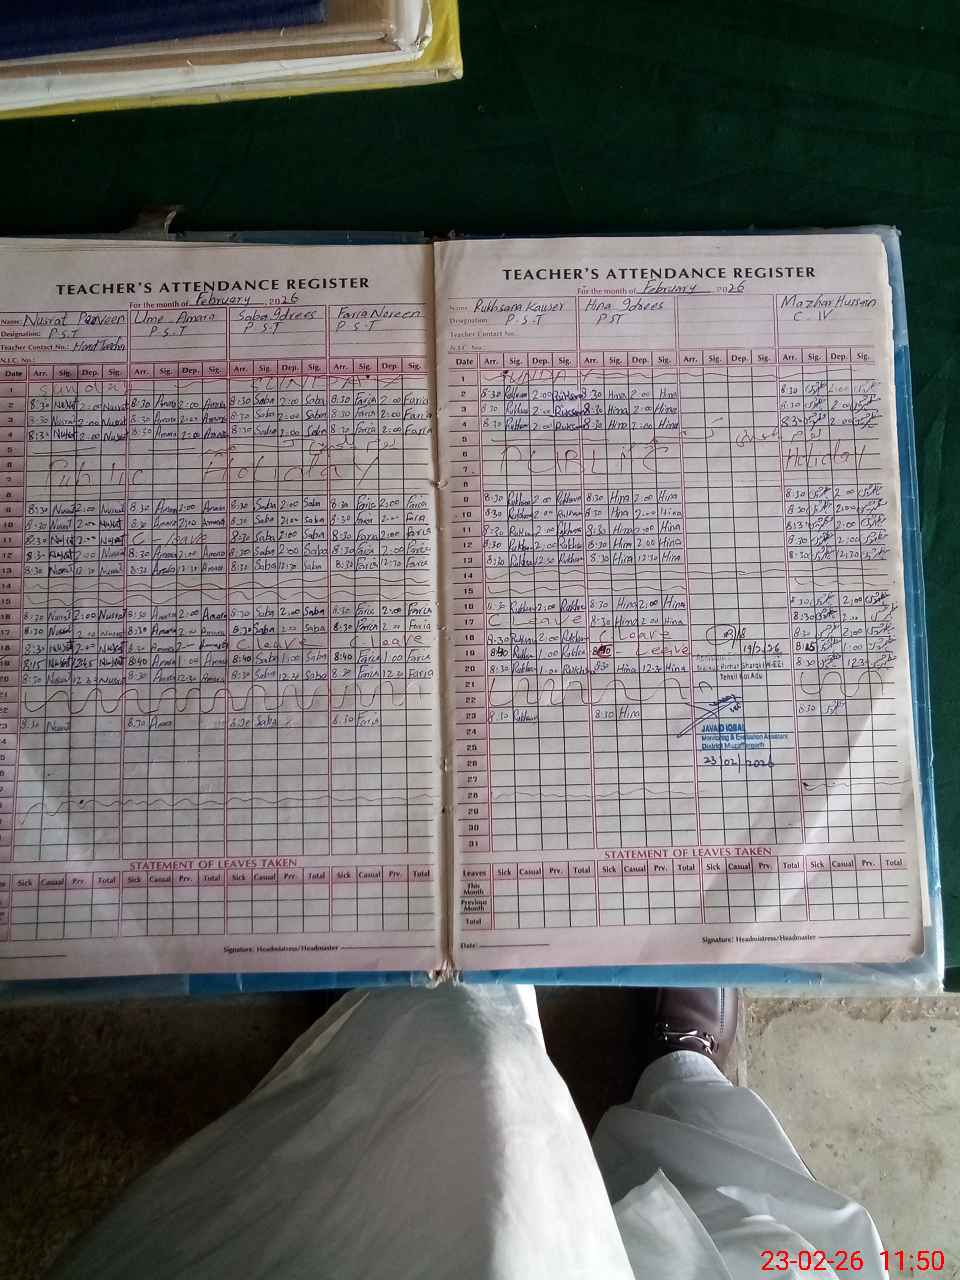 TEACHER'S ATTENDANCE REGISTER
For the month of February 2026
Name: Nusrat Parveen Ume Amara Saba Idrees Faria Noreen
Designation: P.S.T P.S.T P.S.T P.S.T
Teacher Contact No.: Head Teacher
N.I.C. No.:
Date Arr. Sig. Dep. Sig. Arr. Sig. Dep. Sig. Arr. Sig. Dep. Sig. Arr. Sig. Dep. Sig.
1 Sunday SUNDAY
2 8:30 Nusrat 2:00 Nusrat 8:30 Amara 2:00 Amara 8:30 Saba 2:00 Saba 8:30 Faria 2:00 Faria
3 8:30 Nusrat 2:00 Nusrat 8:30 Amara 2:00 Amara 8:30 Saba 2:00 Saba 8:30 Faria 2:00 Faria
4 8:30 Nusrat 2:00 Nusrat 8:30 Amara 2:00 Amara 8:30 Saba 2:00 Saba 8:30 Faria 2:00 Faria
5
6 Public Holiday
7
8
9 8:30 Nusrat 2:00 Nusrat 8:30 Amara 2:00 Amara 8:30 Saba 2:00 Saba 8:30 Faria 2:00 Faria
10 8:30 Nusrat 2:00 Nusrat 8:30 Amara 2:00 Amara 8:30 Saba 2:00 Saba 8:30 Faria 2:00 Faria
11 8:30 Nusrat 2:00 Nusrat C - leave 8:30 Saba 2:00 Saba 8:30 Faria 2:00 Faria
12 8:30 Nusrat 2:00 Nusrat 8:30 Amara 2:00 Amara 8:30 Saba 2:00 Saba 8:30 Faria 2:00 Faria
13 8:30 Nusrat 12:30 Nusrat 8:30 Amara 12:30 Amara 8:30 Saba 12:30 Saba 8:30 Faria 12:30 Faria
14
15
16 8:30 Nusrat 2:00 Nusrat 8:30 Amara 2:00 Amara 8:30 Saba 2:00 Saba 8:30 Faria 2:00 Faria
17 8:30 Nusrat 2:00 Nusrat 8:30 Amara 2:00 Amara 8:30 Saba 2:00 Saba 8:30 Faria 2:00 Faria
18 8:30 Nusrat 2:00 Nusrat 8:30 Amara 2:00 Amara C leave C leave
19 8:15 Nusrat 2:45 Nusrat 8:40 Amara 1:00 Amara 8:40 Saba 1:00 Saba 8:40 Faria 1:00 Faria
20 8:30 Nusrat 12:30 Nusrat 8:30 Amara 12:30 Amara 8:30 Saba 12:30 Saba 8:30 Faria 12:30 Faria
21
22
23 8:30 Nusrat 8:30 Amara 8:30 Saba 8:30 Faria
STATEMENT OF LEAVES TAKEN
Sick Casual Prv. Total Sick Casual Prv. Total Sick Casual Prv. Total Sick Casual Prv. Total
Signature: Headmistress/Headmaster
TEACHER'S ATTENDANCE REGISTER
For the month of February 2026
Name: Rukhsana Kauser Hina Idrees Mazhar Hussain
Designation: P.S.T PST C-IV
Teacher Contact No.:
N.I.C. No.:
Date Arr. Sig. Dep. Sig. Arr. Sig. Dep. Sig. Arr. Sig. Dep. Sig. Arr. Sig. Dep. Sig.
1 SUNDAY
2 8:30 Rukhsana 2:00 Rukhsana 8:30 Hina 2:00 Hina 8:30 2:00
3 8:30 Rukhsana 2:00 Rukhsana 8:30 Hina 2:00 Hina 8:30 2:00
4 8:30 Rukhsana 2:00 Rukhsana 8:30 Hina 2:00 Hina 8:30 2:00
5 یوم کشمیر
6 PUBLIC Holiday
7
8
9 8:30 Rukhsana 2:00 Rukhsana 8:30 Hina 2:00 Hina 8:30 2:00
10 8:30 Rukhsana 2:00 Rukhsana 8:30 Hina 2:00 Hina 8:30 2:00
11 8:30 Rukhsana 2:00 Rukhsana 8:30 Hina 2:00 Hina 8:30 2:00
12 8:30 Rukhsana 2:00 Rukhsana 8:30 Hina 2:00 Hina 8:30 2:00
13 8:30 Rukhsana 12:30 Rukhsana 8:30 Hina 12:30 Hina 8:30 12:30
14
15
16 8:30 Rukhsana 2:00 Rukhsana 8:30 Hina 2:00 Hina 8:30 2:00
17 C Leave 8:30 Hina 2:00 Hina 8:30 2:00
18 8:30 Rukhsana 2:00 Rukhsana C leave 8:30 2:00
19 8:40 Rukhsana 1:00 Rukhsana C - Leave 19/2/26 8:15 1:00
20 8:30 Rukhsana 1:00 Rukhsana 8:30 Hina 12:30 Hina 8:30 12:30
Tehsil Kot Adu
21
22
23 8:30 Rukhsana 8:30 Hina 8:30
24 JAVAID IQBAL
25 Monitoring & Evaluation Assistant
District Muzaffargarh
26 23/02/2026
27
28
29
30
31
STATEMENT OF LEAVES TAKEN
Leaves Sick Casual Prv. Total Sick Casual Prv. Total Sick Casual Prv. Total Sick Casual Prv. Total
This Month
Previous Month
Total
Date: Signature: Headmistress/Headmaster
23-02-26 11:50